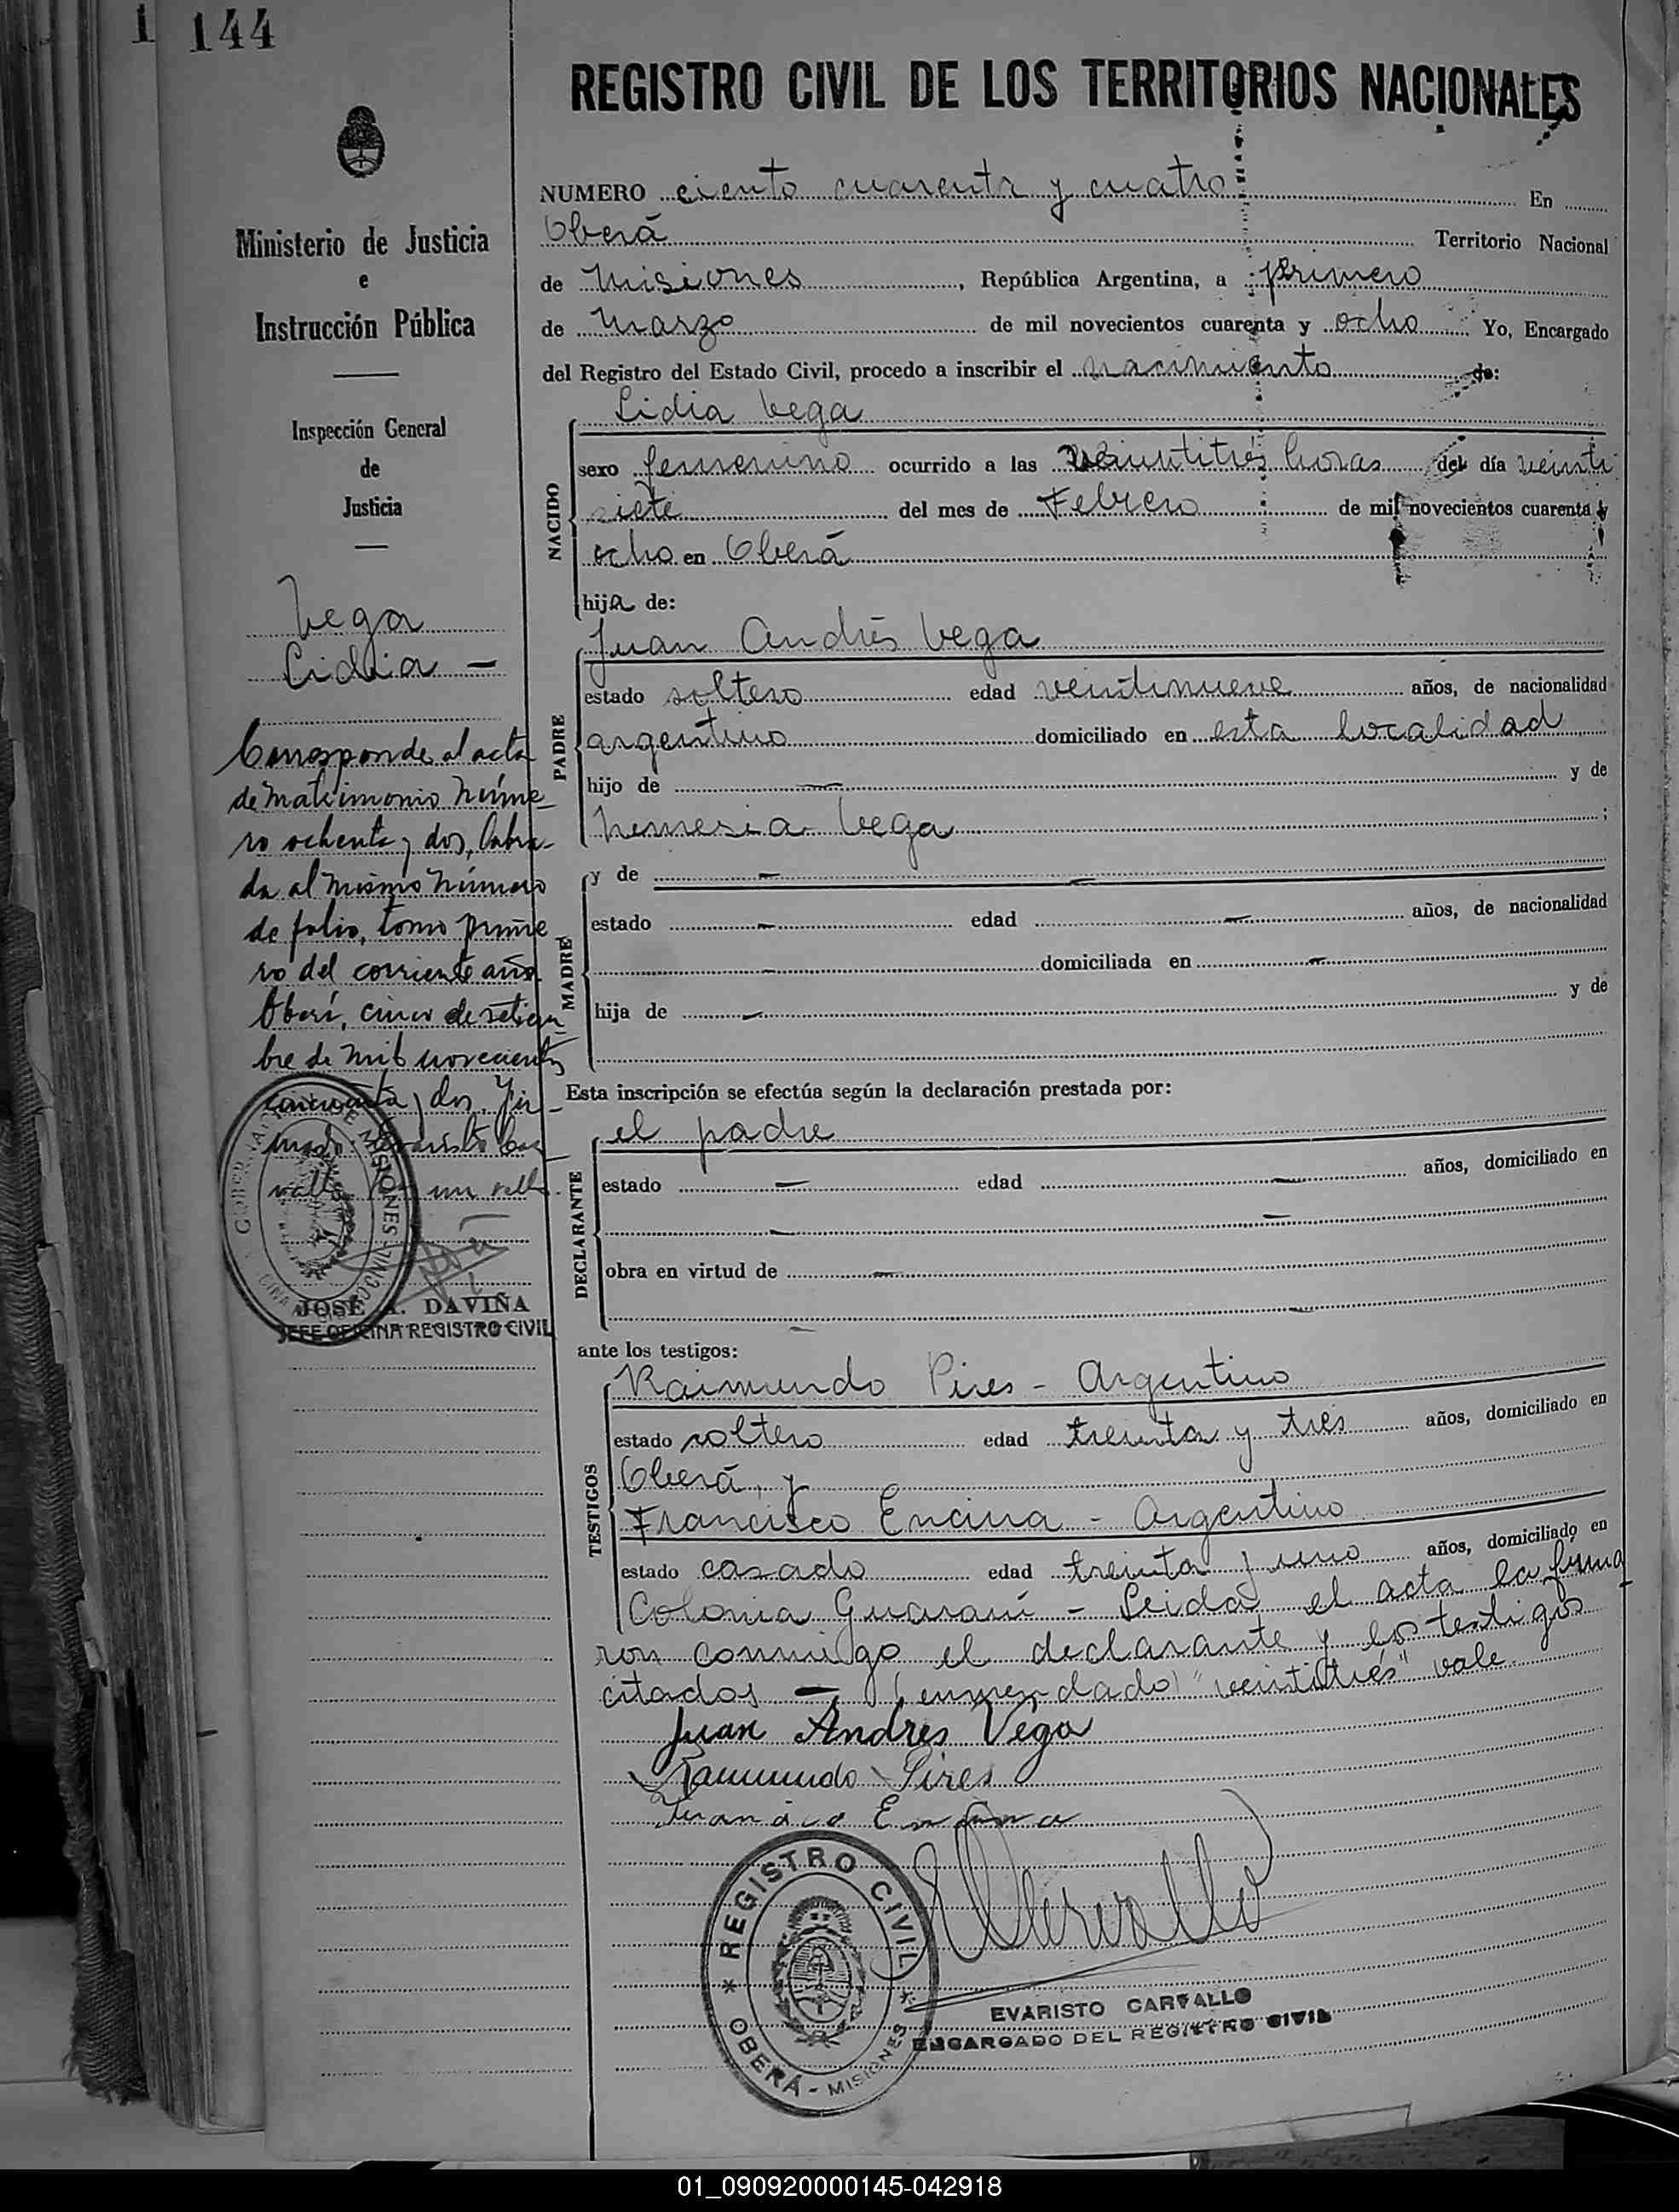 1 144
REGISTRO CIVIL DE LOS TERRITORIOS NACIONALES
Ministerio de Justicia
e
Instrucción Pública
Inspección General
de
Justicia
Vega
Lidia —
Corresponde al acta
de matrimonio núme-
ro ochenta y dos, labra-
da al mismo número
de folio, tomo prime
ro del corriente año.
Oberá, cinco de setiem-
bre de mil novecientos
cincuenta y dos. Fir-
mado: Evaristo Car-
vallo. Hay un sello.
GOBERNACION DE MISIONES
JOSÉ A. DAVIÑA
JEFE OFICINA REGISTRO CIVIL
NUMERO ciento cuarenta y cuatro En
Oberá Territorio Nacional
de Misiones, República Argentina, a primero
de Marzo de mil novecientos cuarenta y ocho Yo, Encargado
del Registro del Estado Civil, procedo a inscribir el nacimiento de:
NACIDO
Lidia Vega
sexo femenino ocurrido a las veintitrés horas del día veinti
siete del mes de Febrero de mil novecientos cuarenta y
ocho en Oberá
hija de:
PADRE
Juan Andrés Vega
estado soltero edad veintinueve años, de nacionalidad
argentino domiciliado en esta localidad
hijo de — y de
Nemesia Vega ;
MADRE
y de — —
estado — edad — años, de nacionalidad
— domiciliada en —
hija de — y de
Esta inscripción se efectúa según la declaración prestada por:
DECLARANTE
el padre
estado — edad — años, domiciliado en
— —
obra en virtud de —
— —
ante los testigos:
TESTIGOS
Raimundo Pires - Argentino
estado soltero edad treinta y tres años, domiciliado en
Oberá, y
Francisco Encina - Argentino
estado casado edad treinta y uno años, domiciliado en
Colonia Guaraní - Leida el acta la firma
ron conmigo el declarante y los testigos
citados — (enmendado) "veintitrés" vale.
Juan Andres Vega
Raimundo Pires
Francisco Encina
REGISTRO CIVIL
* OBERÁ - MISIONES *
ECarvallo
EVARISTO CARVALLO
ENCARGADO DEL REGISTRO CIVIL
01_090920000145-042918